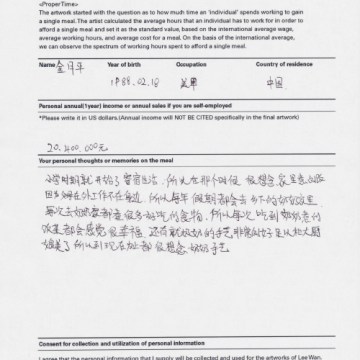 <ProperTime>
The artwork started with the question as to how much time an 'individual' spends working to gain
a single meal. The artist calculated the average hours that an individual has to work for in order to
afford a single meal and set it as the standard value, based on the international average wage,
average working hours, and average cost for a meal. On the basis of the international average,
we can observe the spectrum of working hours spent to afford a single meal.
Name Year of birth Occupation Country of residence
1988.02.18 中国
Personal annual(1year) income or annual sales if you are self-employed
*Please write it in US dollars.(Annual income will NOT BE CITED specifically in the final artwork)
20,400.000元
Your personal thoughts or memories on the meal
小学时期就开始了 生活 所以在那个时候 很想念家里
工作不在身边 所以每年假期都会去乡下的奶奶家里
每次去奶奶都 好吃的食物 所以每次吃到奶奶
都会感觉很幸福 奶奶的手艺非常的好
所以到现在 都很想念奶奶手艺
Consent for collection and utilization of personal information
I agree that the personal information that I supply will be collected and used for the artworks of Lee Wan,